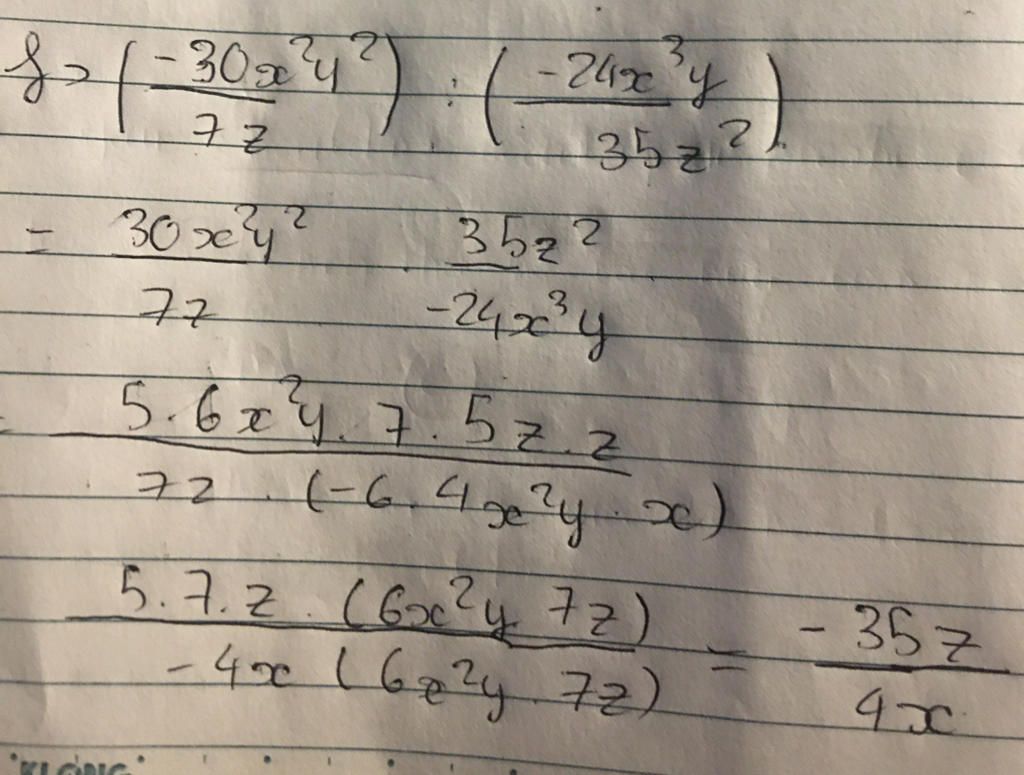 g> (-30x²y² / 7z) : (-24x³y / 35z²)
= 30x²y² / 7z . 35z² / -24x³y
= 5.6x²y.7.5z.z / 7z . (-6.4x²y.x)
5.7.z.(6x²y.7z) / -4x(6x²y.7z) = -35z / 4x